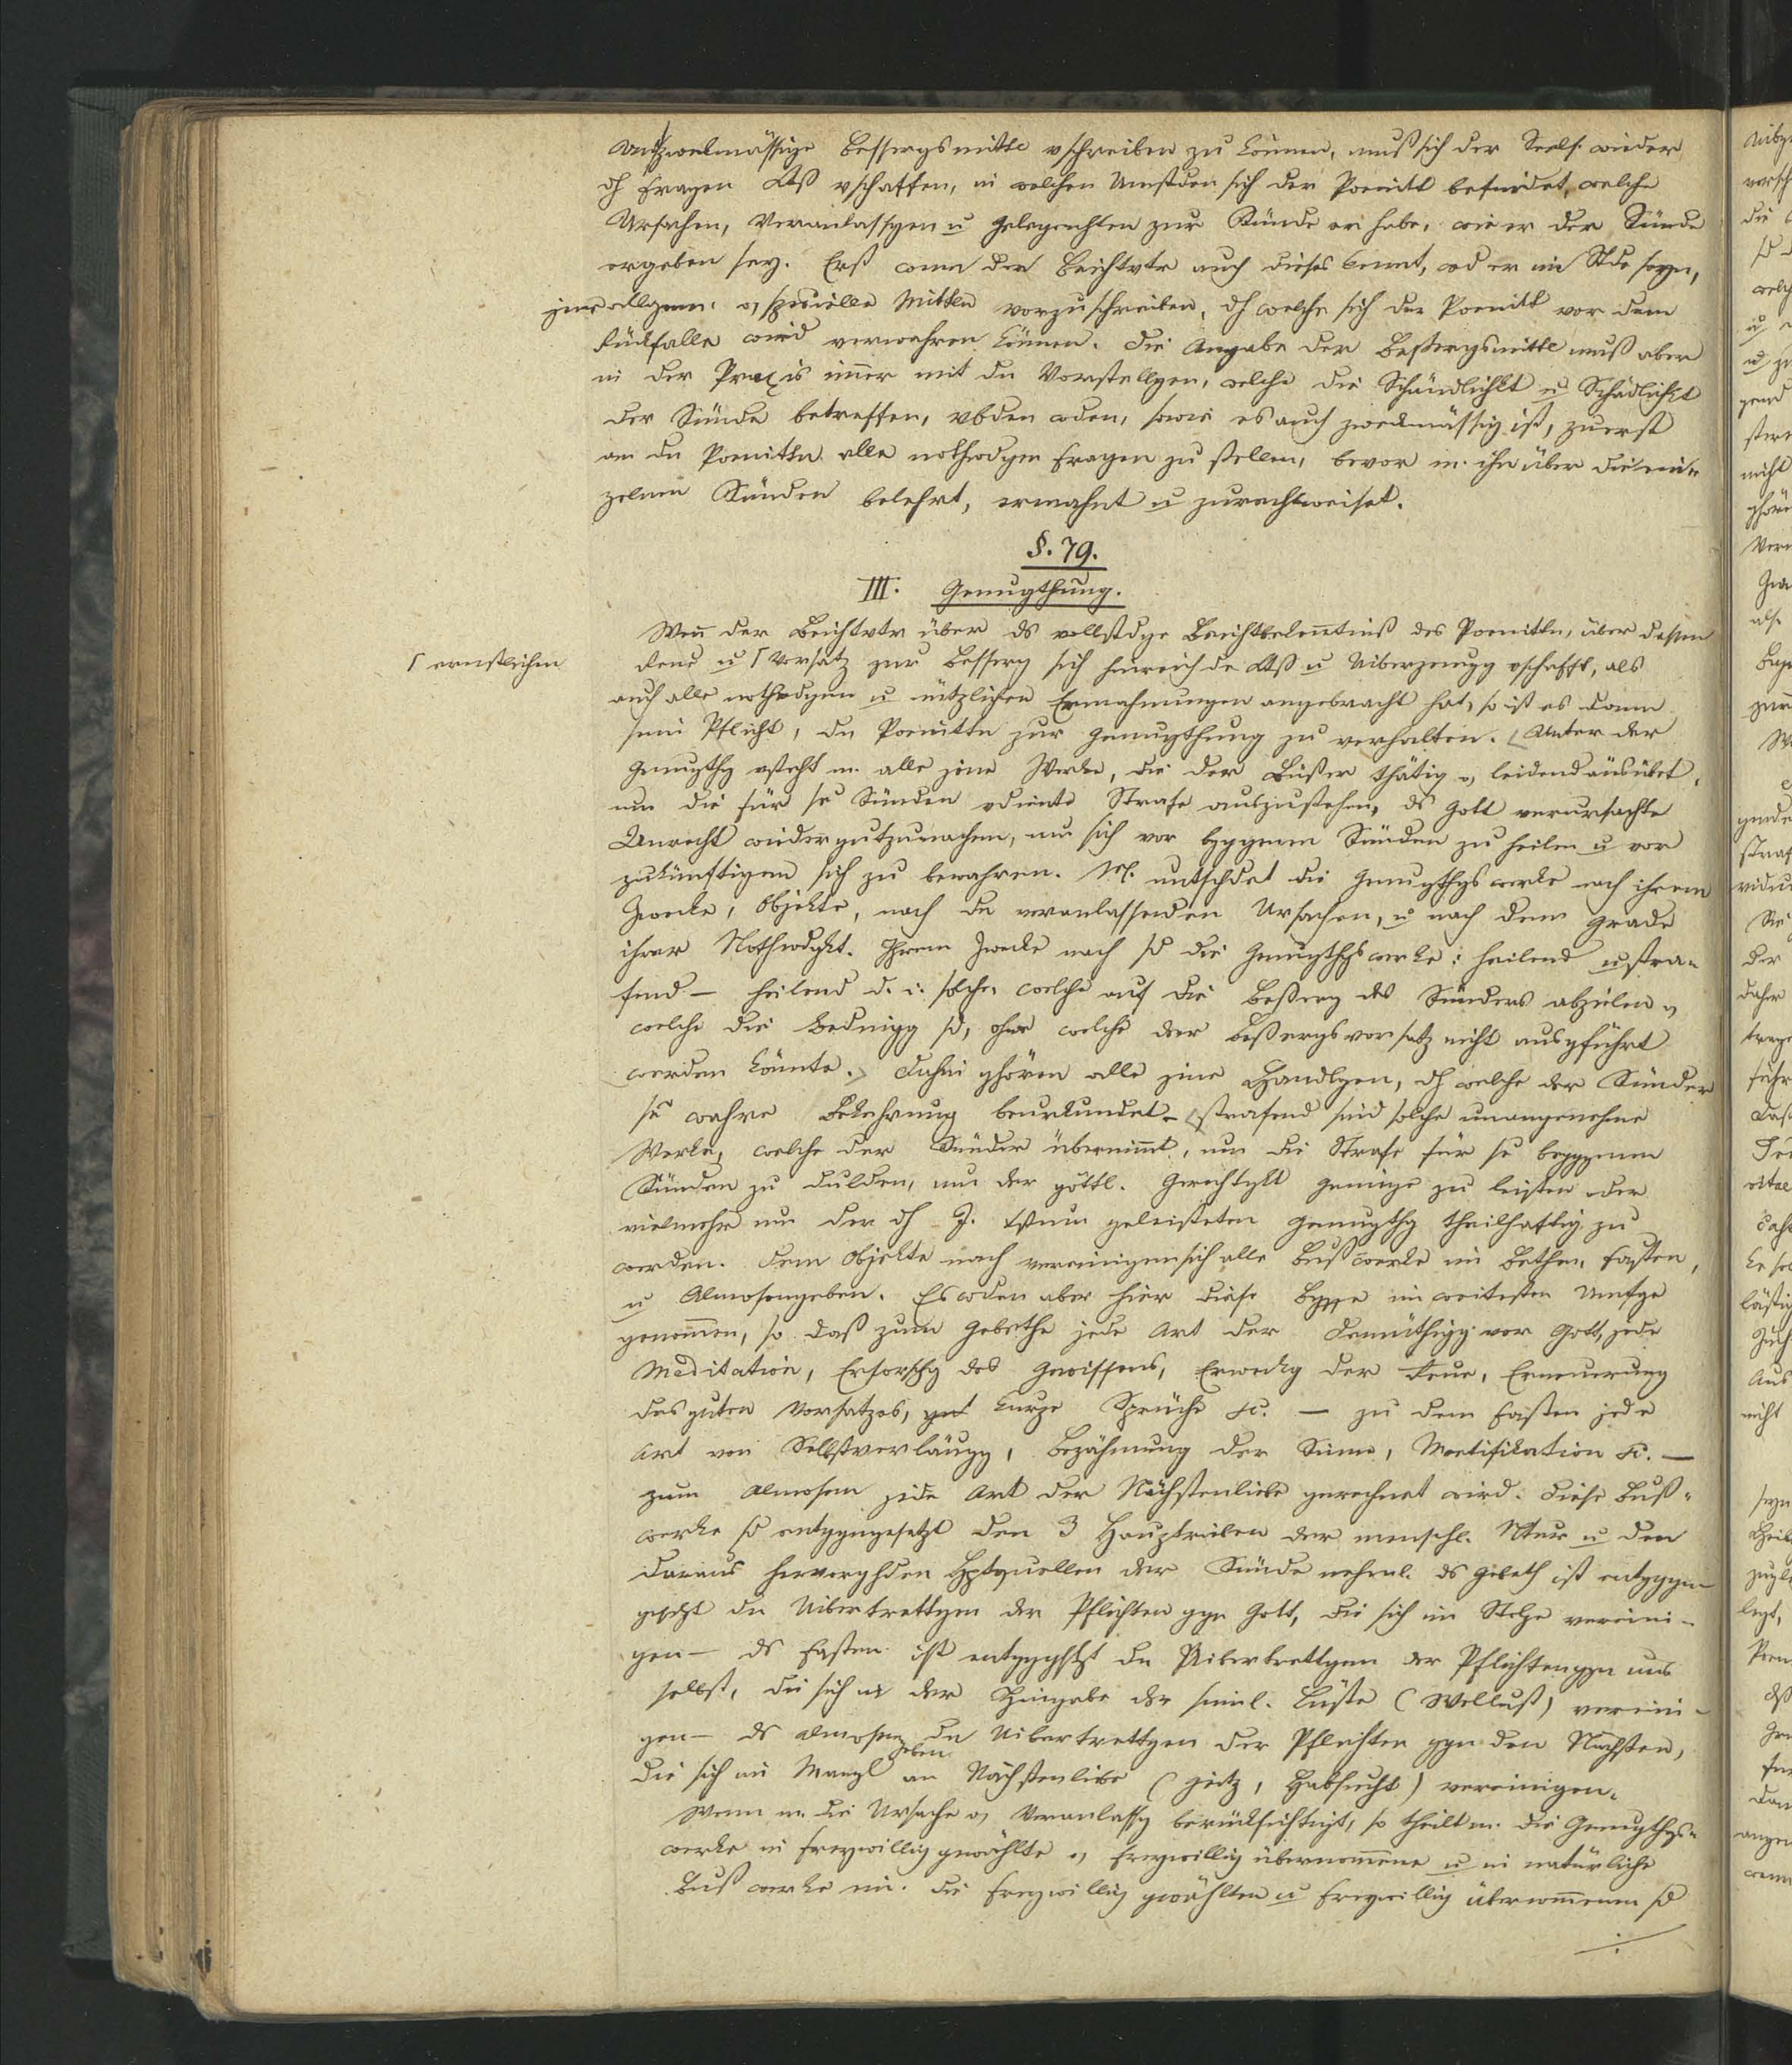 zwekmässige Besserungsmittl vschreiben zu können, muß sich der Seels. wieder
dh Fragen vschaffen, in welchen Umstden sich der Poenitt befindet, welche
Ursachen, Veranlassgen u Gelegenhten zur Sünde er habe, wie er der Sünde
ergeben sey. Erst wenn der Beichtvtr auch dieses kennt, wd er im Stde seyn,
jene allgem. o, spezielle Mitteln vorzuschreiben, dh welche sich der Poenitt vor dem
Rückfalle wird verwahren können. Die Angabe der Besserungsmittl muß aber
in der Praxis imer mit dn Vorstellgen, welche die Schändlichkt u Schädlichkt
der Sünde betreffen, vbden wden, sowie es auch zweckmässig ist, zuerst
an dn Poenittn alle nothwdgen Fragen zu stellen, bevor m. ihn über die ein-
zelnen Sünden belehrt, ermahnt u zurechtweiset.
§. 79.
III. Genugthung.
Wen der Beichtvtr über ds vollstdge Beichtbekentniß des Poenittn, über dessen
Reue u ſ Vorsatz zur Besserg sich hinreichde u Uiberzeugg vschafft, als
ſ ernstlichen
auch alle nothwdgen u nützlichen Ermahnungen angebracht hat, so ist es dann
sein Pflicht, dn Poenittn zur Genugthung zu verhalten. Unter der
Genugthg vsteht m. alle jene Werke, die der Büßer thätig o, leidend ausübet,
um die für se Sünden vdiente Strafe auszustehen, ds Gott verursachte
Unrecht wiedergutzumachen, um sich von bggenen Sünden zu heilen u vor
zukünftigen sich zu bewahren. M. untschdet die Genugthgswerke nach ihrem
Zwecke, Objekte, nach dn veranlassenden Ursachen, u nach dem Grade
ihrer Nothwdgkt. Ihrem Zwecke nach sd die Genugthgswerke: heilend u stra-
fend — heilend d. i. solche, welche auf die Besserg des Sünders abzielen o,
welche die Bedingg sd, ohne welche der Beßergsvorsatz nicht ausgführt
werden könnte. Dahin ghören alle jene Handlgen, dh welche der Sünder
se wahre Bekehrung beurkundet — strafend sind solche unangenehme
Werke, welche der Sünder übernimmt, um die Strafe für se begggenen
Sünden zu dulden, um der göttl. Gerechtgkt Genüge zu leisten oder
vielmehr um der dh J. Xstum geleisteten Genugthg theilhaftig zu
werden. Dem Objekte nach vereinigen sich alle Bußwerke im Bethen, Fasten,
u Almosengeben. Es wden aber hier diese Bgffe im weitesten Umfge
genommen, so daß zum Gebethe jede Art der Demüthigg vor Gott, jede
Meditation, Erforschg des Gewissens, Erweckg der Reue, Erneuerung
des guten Vorsatzes, kurze Sprüche &c. — zu dem Fasten jede
Art von Selbstverläugg, Bezähmung der Sinne, Mortifikation &c. —
zum Almosen jede Art der Nächstenliebe gerechnet wird. Diese Buß-
werke sd entggengesetzt den 3 Haupttrieben der menschl. Ntur u den
daraus hervorghden Hptquellen der Sünde nehml. ds Gebeth ist entgggen
gesetzt dn Uibertrettgen der Pflichten ggn Gott, die sich im Stolze vereini-
gen — ds Fasten ist entggghstzt dn Uibertrettgen der Pflichten ggn uns
selbst, die sich in der Hingabe der sinnl. Lüste (Wollust) vereini-
gen — ds Almosengeben dn Uibertrettgen der Pflichten ggn den Nächsten,
die sich im Mangl an Nächstenliebe (Geitz, Habsucht) vereinigen.
Wenn m. die Ursache o, Veranlassg berücksichtigt, so theilt m. die Genugthgs-
werke in freywillig gewählte o, freywillig übernommene u in natürliche
Bußwerke ein. Die freywillig gwählten u freywillig übernommenen sd